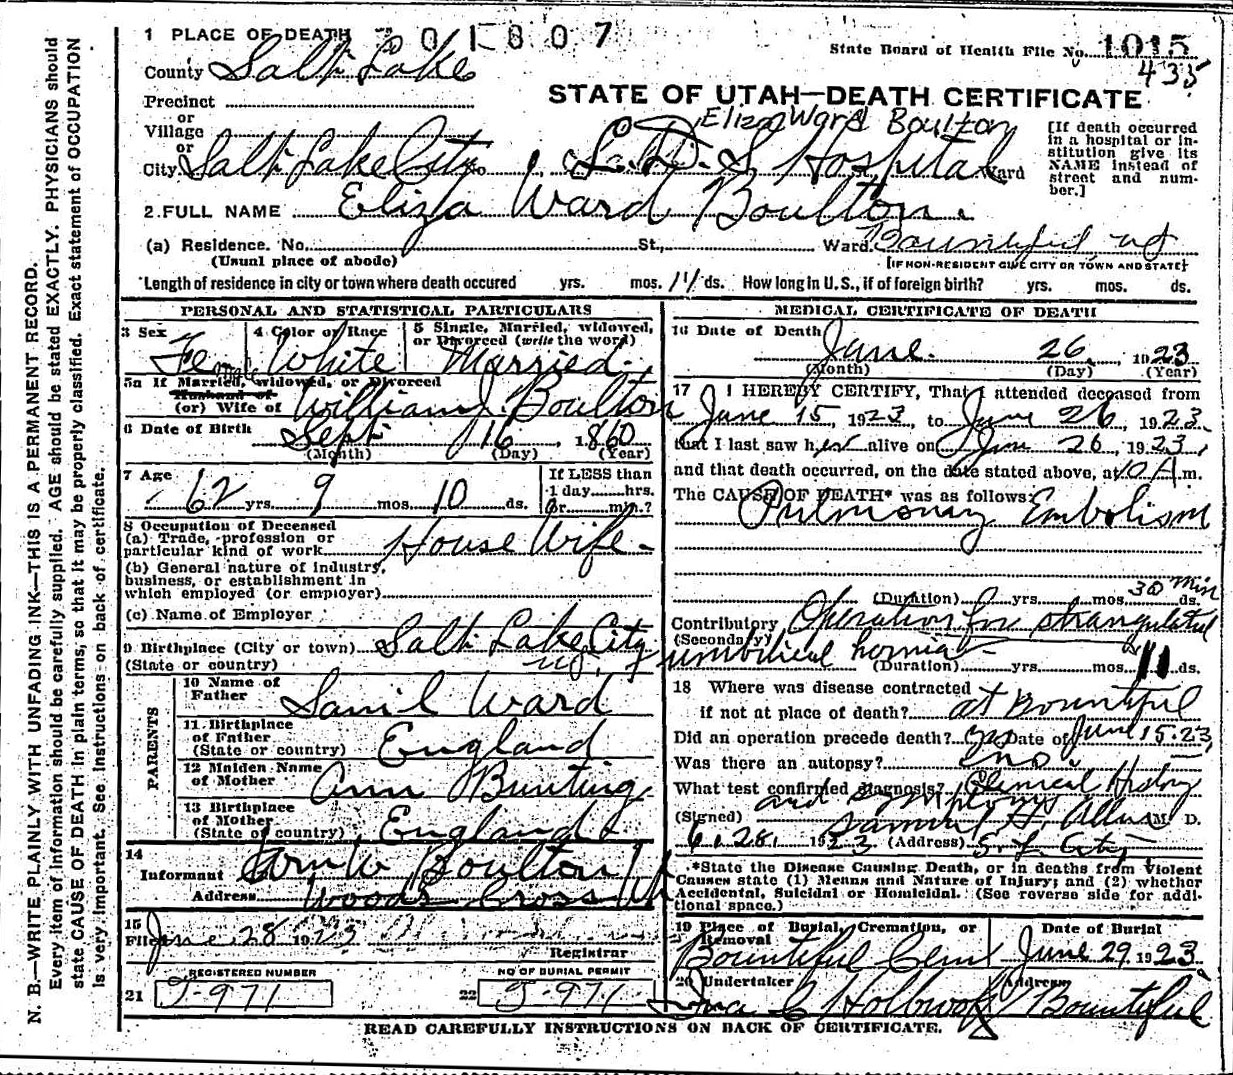 1 PLACE OF DEATH
State Board of Health File No. 1015
435
County Salt Lake
STATE OF UTAH—DEATH CERTIFICATE
Precinct
or
Village
Eliza Ward Boulton
or
City. Salt Lake City No. L. D. S. Hospital Ward
[If death occurred in a hospital or institution give its NAME instead of street and number.]
2. FULL NAME Eliza Ward Boulton.
(a) Residence. No. St., Ward. Bountiful, Ut
(Usual place of abode)
[IF NON-RESIDENT GIVE CITY OR TOWN AND STATE]
Length of residence in city or town where death occured yrs. mos. 11 ds. How long in U. S., if of foreign birth? yrs. mos. ds.
PERSONAL AND STATISTICAL PARTICULARS
3 Sex Female
4 Color or Race White
5 Single, Married, widowed, or Divorced (write the word) Married.
5a If Married, widowed, or Divorced
Husband of
(or) Wife of William J. Boulton
6 Date of Birth Sept. 16 1860
(Month) (Day) (Year)
7 Age 62 yrs 9 mos. 10 ds.
If LESS than
1 day hrs.
or min.?
8 Occupation of Deceased
(a) Trade, profession or
particular kind of work House Wife.
(b) General nature of industry,
business, or establishment in
which employed (or employer)
(c) Name of Employer
9 Birthplace (City or town) Salt Lake City
(State or country)
PARENTS
10 Name of Father Saml Ward
11 Birthplace of Father (State or country) England
12 Maiden Name of Mother Ann Bunting
13 Birthplace of Mother (State or country) England
14
Informant Boulton
Address Woods Cross Ut
15
Filed June 28 1923
Registrar
REGISTERED NUMBER
21 J-971
NO OF BURIAL PERMIT
22 J-971
MEDICAL CERTIFICATE OF DEATH
16 Date of Death June. 26, 1923
(Month) (Day) (Year)
17 I HEREBY CERTIFY, That I attended deceased from
June 15, 1923, to June 26, 1923.
that I last saw her alive on Jun 26, 1923,
and that death occurred, on the date stated above, at 10 A.m.
The CAUSE OF DEATH* was as follows:
Pulmonary Embolism
(Duration) yrs. mos. 30 Min ds.
Contributory Operation for strangulated
(Secondary) umbilical hernia
(Duration) yrs. mos. 11 ds.
18 Where was disease contracted
if not at place of death? at Bountiful
Did an operation precede death? yes Date of June 15-23,
Was there an autopsy? no.
What test confirmed diagnosis? Clinical History
and symptoms
(Signed) Samuel H. Allen M. D.
6.28, 1923 (Address) S. L. City
*State the Disease Causing Death, or in deaths from Violent
Causes state (1) Means and Nature of Injury; and (2) whether
Accidental, Suicidal or Homicidal. (See reverse side for additional space.)
19 Place of Burial, Cremation, or Removal
Bountiful Cem
Date of Burial
June 29, 1923
20 Undertaker Holbrook
Address Bountiful
READ CAREFULLY INSTRUCTIONS ON BACK OF CERTIFICATE.
N. B.—WRITE PLAINLY WITH UNFADING INK—THIS IS A PERMANENT RECORD.
Every item of information should be carefully supplied. AGE should be stated EXACTLY. PHYSICIANS should
state CAUSE OF DEATH in plain terms, so that it may be properly classified. Exact statement of OCCUPATION
is very important. See instructions on back of certificate.